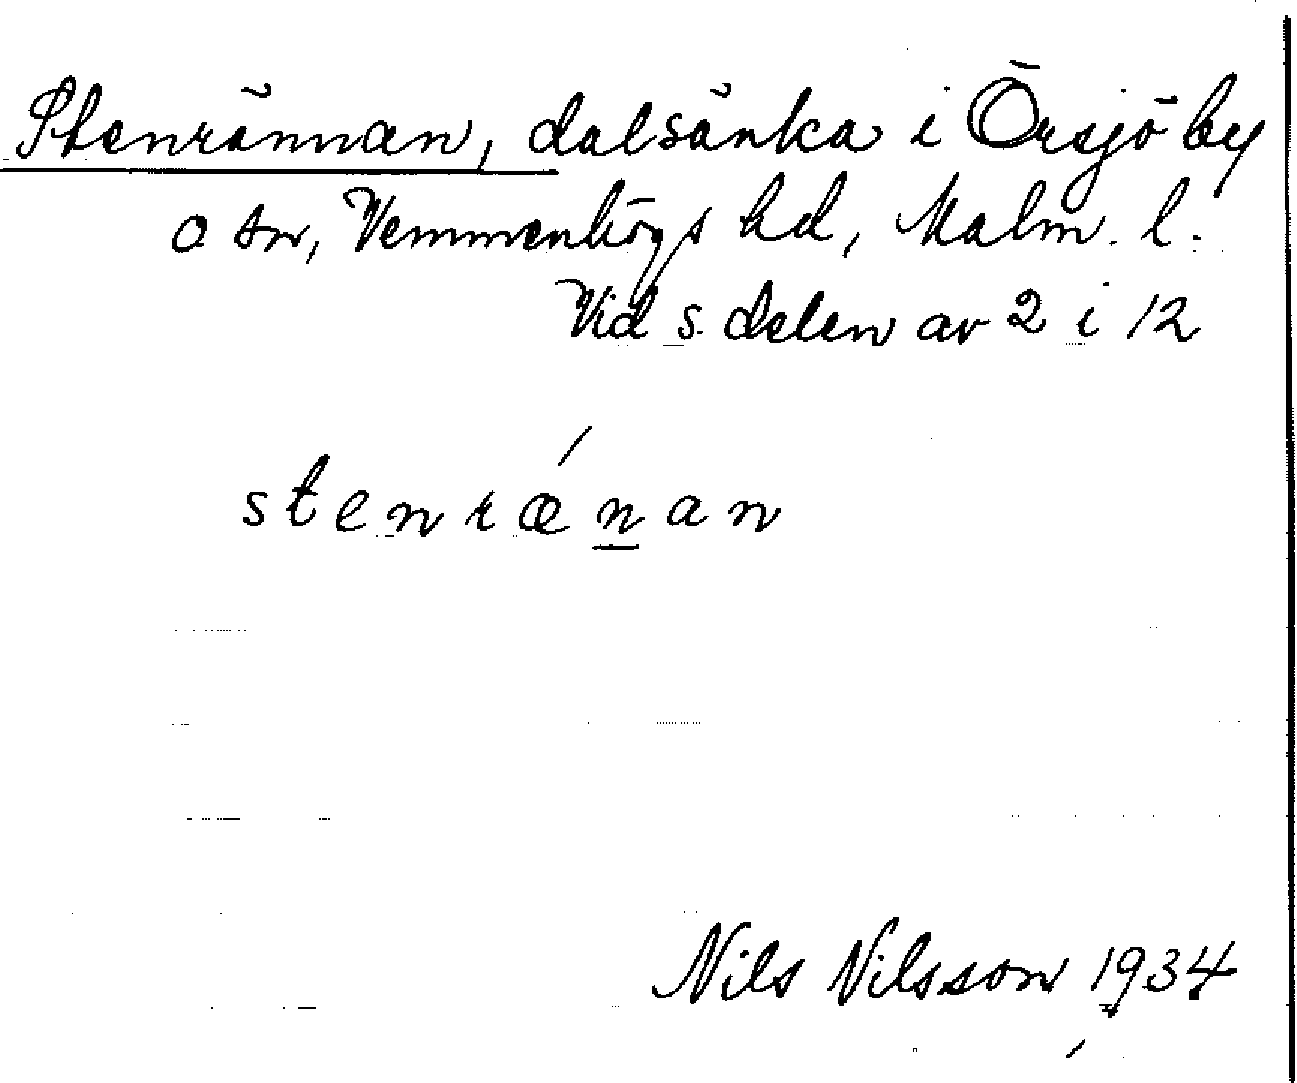 Stenrännan, dalsänka i Örsjö by
o sn, Vemmenhögs hd, Malm. l.
Vid s. delen av 2 i 12
stenrǽn̲an
Nils Nilsson 1934